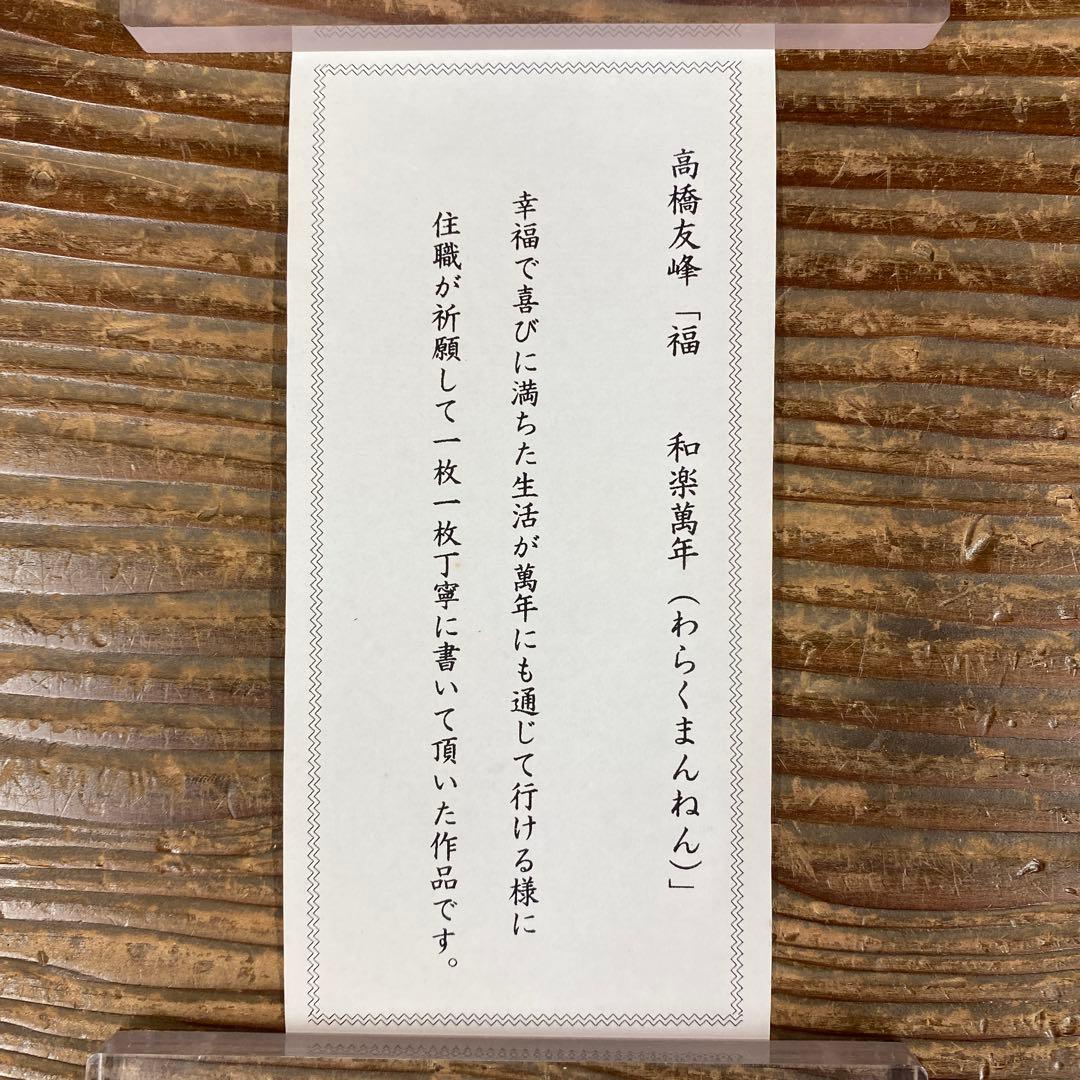 高橋友峰「福　　和楽萬年（わらくまんねん）」
幸福で喜びに満ちた生活が萬年にも通じて行ける様に
住職が祈願して一枚一枚丁寧に書いて頂いた作品です。